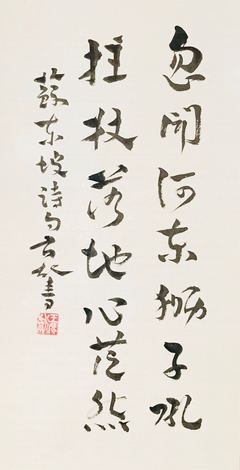 忽闻河东狮子吼
拄杖落地心茫然
苏东坡诗句